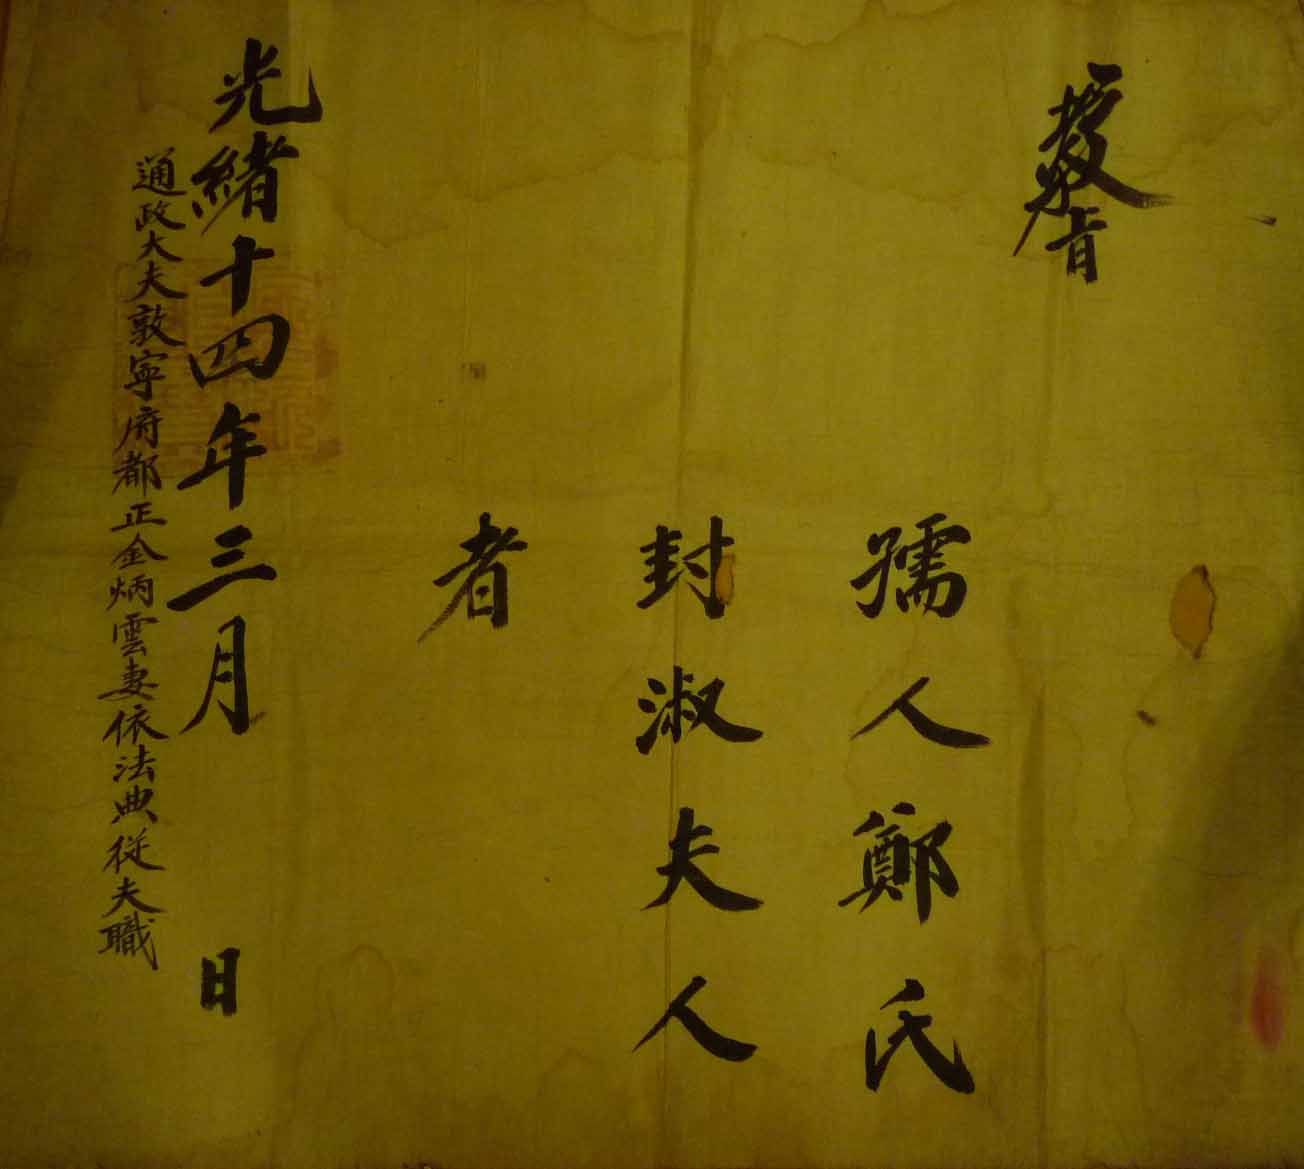 敎旨
孺人鄭氏
封淑夫人
者
光緖十四年三月 日
通政大夫敦寧府都正金炳雲妻依法典從夫職